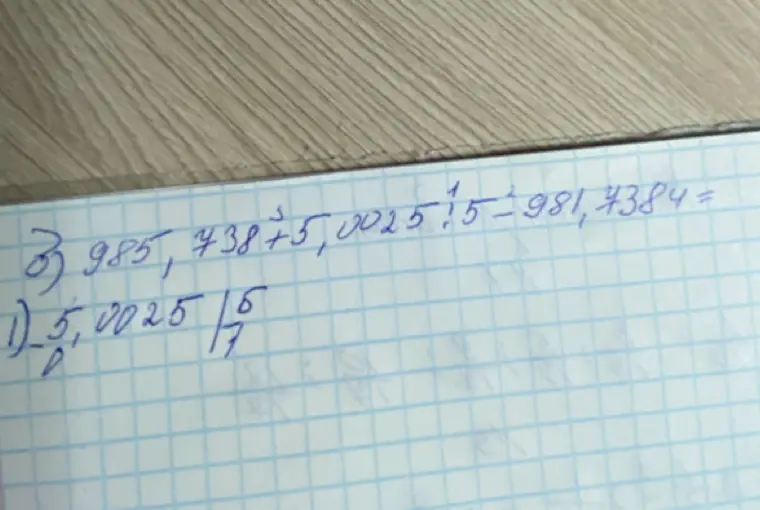 б) 985,738 + 5,0025 : 5 - 981,7384 =
3 1 2
1) - 5,0025 | 5
0 1